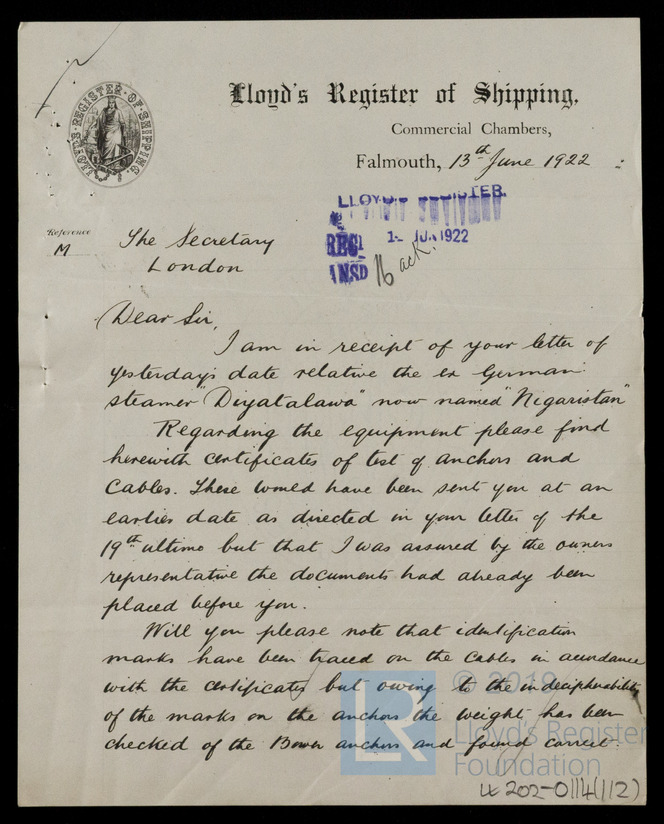 LLOYD'S·REGISTER·OF·SHIPPING.
Lloyd's Register of Shipping,
Commercial Chambers,
Falmouth, 13th June 1922
LLOYD'S REGISTER.
JUN 1922
Reference
M
The Secretary
London
Dear Sir,
I am in receipt of your letter of
yesterday's date relative the ex German
steamer "Diyatalawa" now named "Nigaristan"
Regarding the equipment please find
herewith certificates of test of anchors and
cables. These would have been sent you at an
earlier date as directed in your letter of the
19th ultimo but that I was assured by the owners
representative the documents had already been
placed before you.
Will you please note that identification
marks have been traced on the cables in accordance
with the certificates but owing to the indecipherability
of the marks on the anchors the weight has been
checked of the Bower anchors and found correct.
© 2019
Lloyd's Register
Foundation
LR
LR 202-0114(1/2)